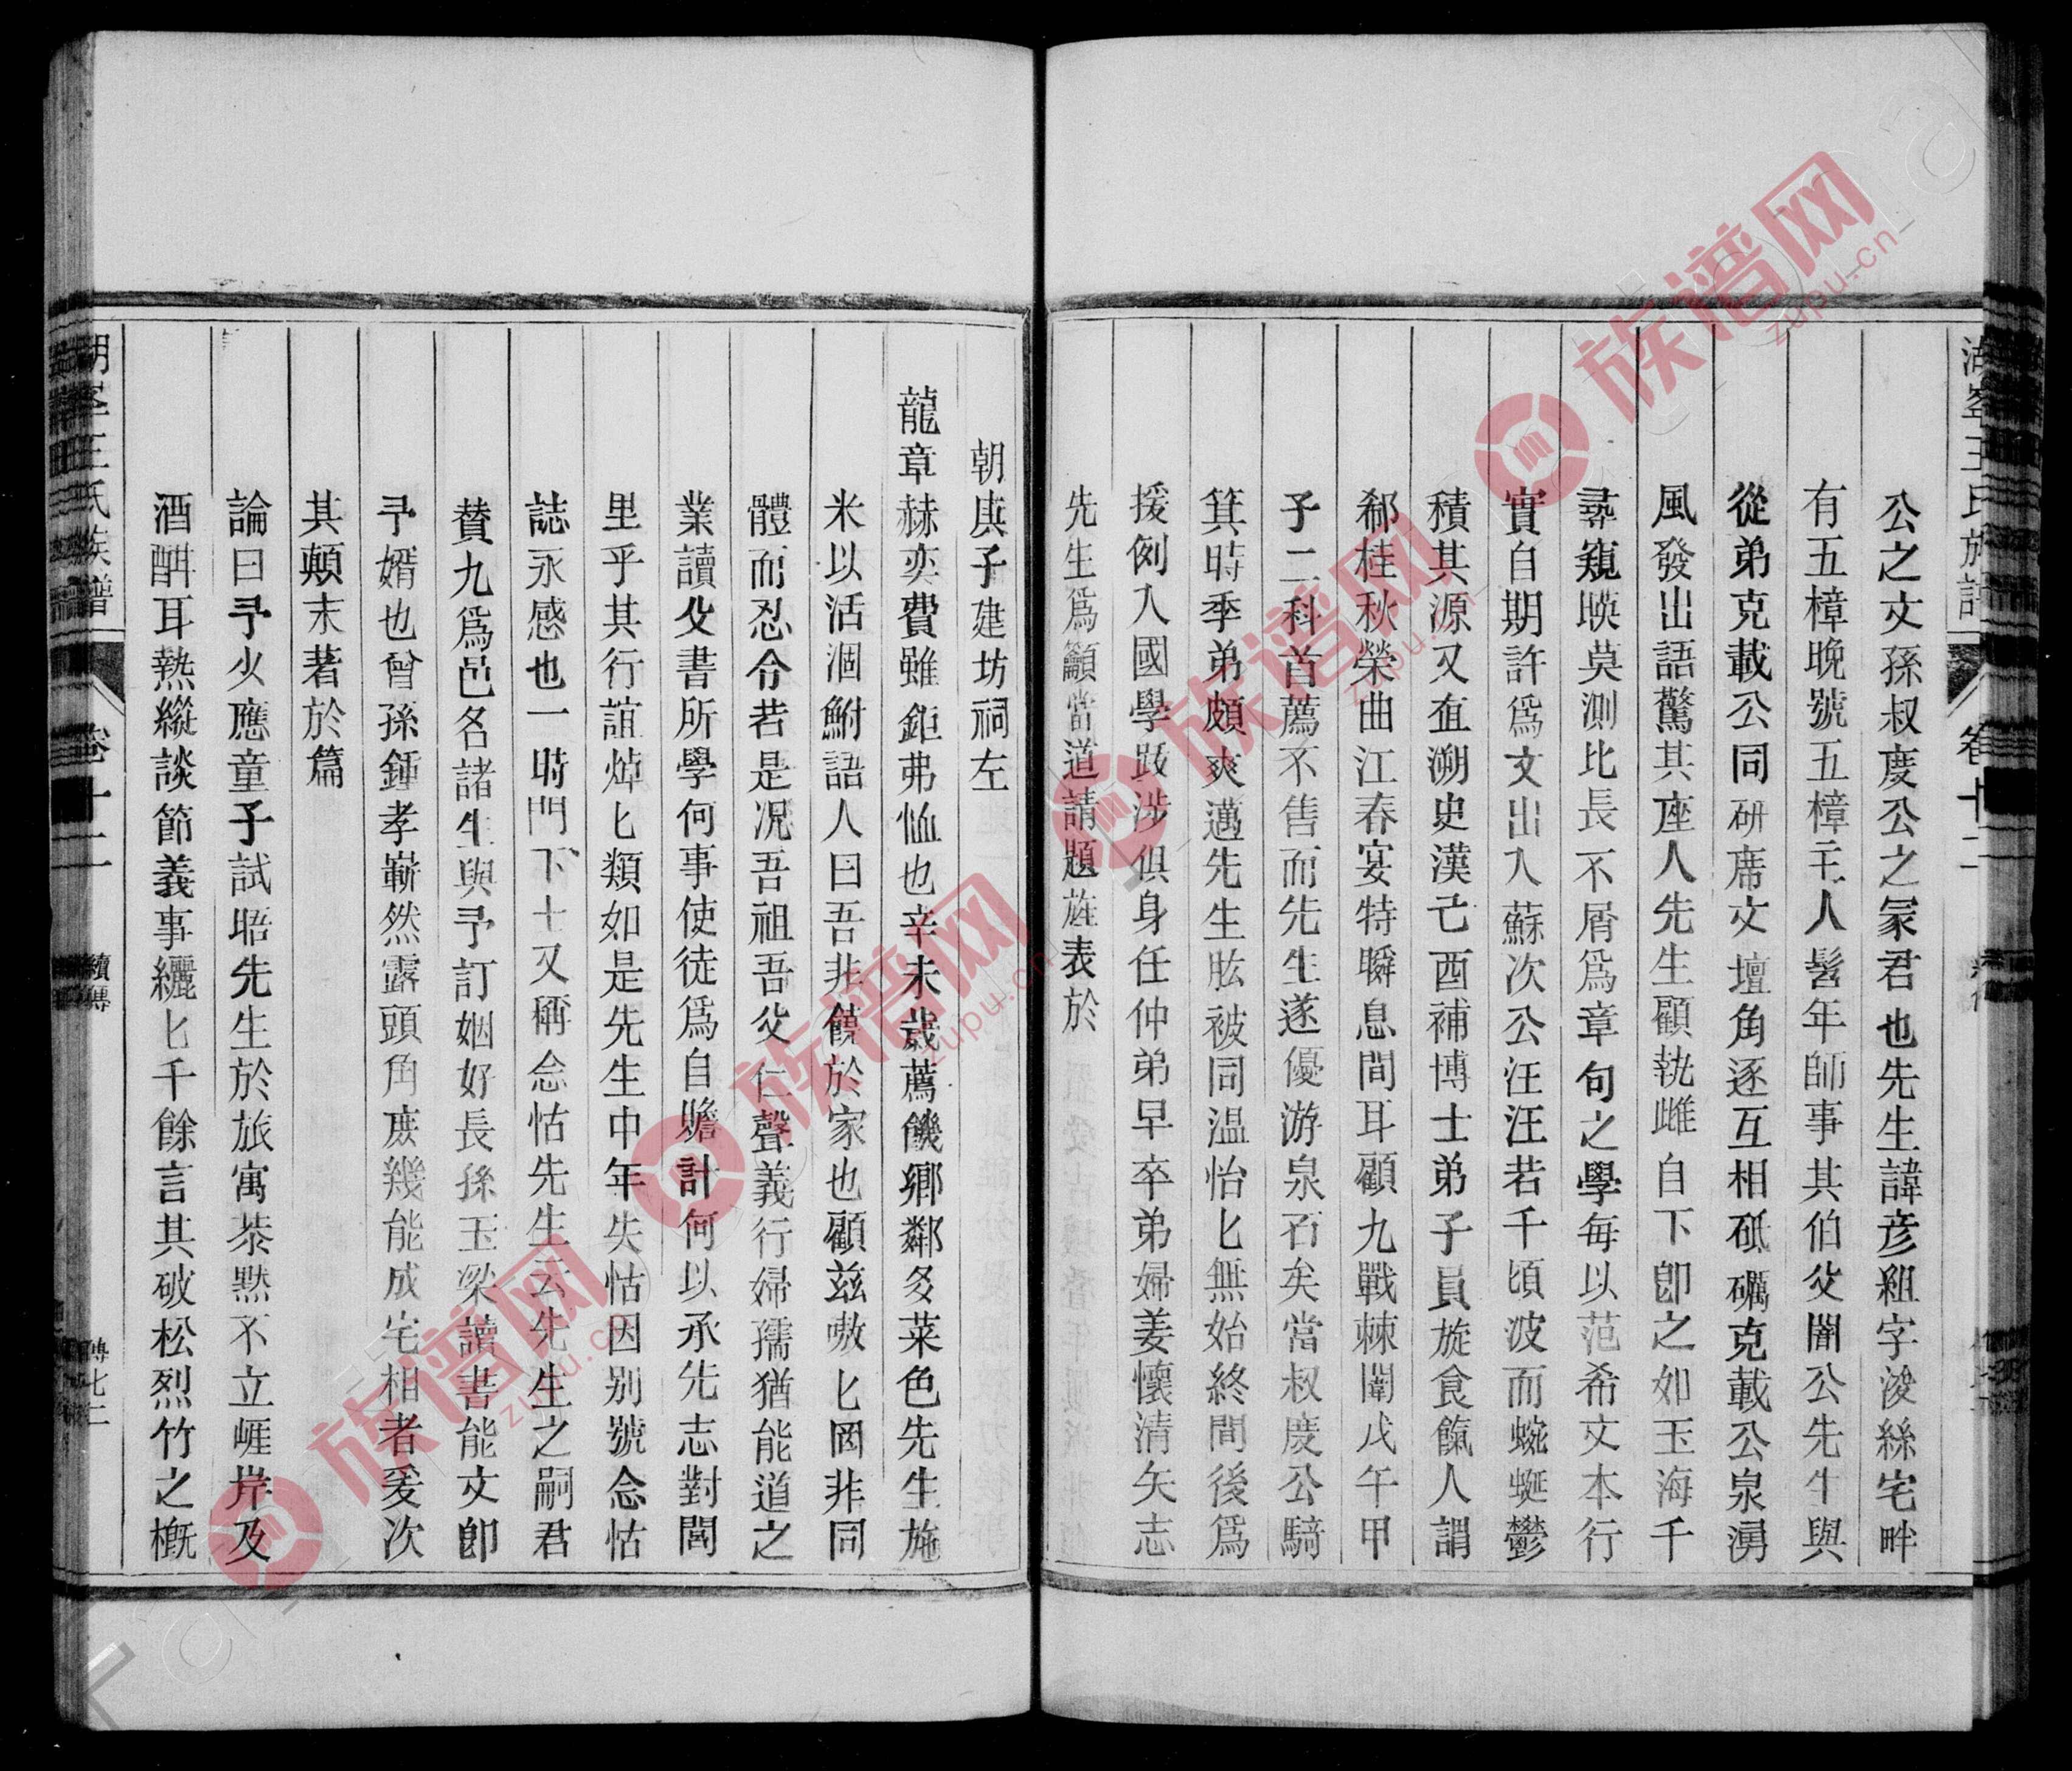 公之文孫叔度公之冢君也先生諱彦組字浚絲宅畔
有五樟晚號五樟主人髫年師事其伯父闇公先生與
從弟克載公同研席文壇角逐互相砥礪克載公泉湧
風發出語驚其座人先生顧執雌自下卽之如玉海千
尋窺暎莫測比長不屑爲章句之學每以范希文本行
實自期許爲文出入蘇次公汪汪若千頃波而蜿蜒鬱
積其源又直溯史漢己酉補博士弟子員旋食餼人謂
郄桂秋榮曲江春宴特瞬息間耳顧九戰棘闈戊午甲
子二科首薦不售而先生遂優游泉石矣當叔度公騎
箕時季弟頗爽邁先生肱被同温怡匕無始終間後爲
援例入國學跋涉俱身任仲弟早卒弟婦姜懷清矢志
先生爲籲當道請題旌表於
朝庚子建坊祠左
龍章赫奕費雖鉅弗恤也辛未歲薦饑鄉鄰多菜色先生施
米以活涸鮒語人曰吾非饒於家也顧兹嗷匕罔非同
體而忍令若是况吾祖吾父仁聲義行婦孺猶能道之
業讀父書所學何事使徒爲自贍計何以承先志對閭
里乎其行誼焯匕類如是先生中年失怙因别號念怙
誌永感也一時門下士又稱念怙先生云先生之嗣君
賛九爲邑名諸生與予訂姻好長孫玉梁讀書能文卽
予婿也曾孫鍾孝嶄然露頭角庶幾能成宅相者爰次
其顛末著於篇
論曰予少應童子試晤先生於旅寓恭默不立崕岸及
酒酣耳熱縱談節義事纚匕千餘言其破松烈竹之槪
湖峯王氏族譜
卷十二
續傳
傳七二